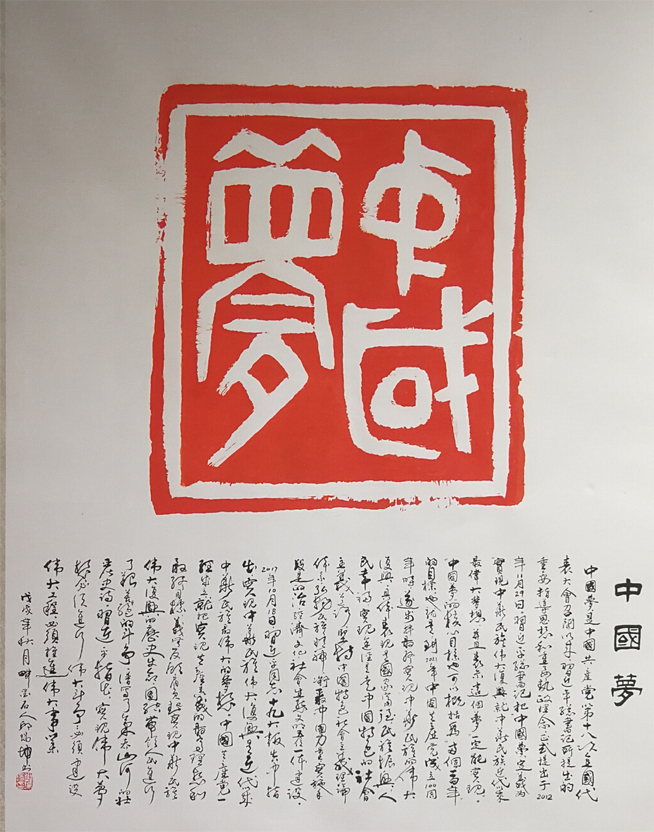 中國夢
中國夢
中國夢是中國共產黨第十八次全國代
表大會召開以來習近平總書記所提出的
重要指導思想和重要執政理念正式提出于2012
年11月29日習近平總書記把中國夢定義為
實現中華民族偉大復興就是中華民族近代以來
最偉大夢想并且表示這個夢一定能實現
中國夢的核心目標也可以概括為兩個一百年
的目標也就是到2021年中国共產党成立100周
年時逐步并最終實現中华民族的偉大
復興具体表現是國家富強民族振興人
民幸福實現途徑是走中國特色的社會
主義道路堅持中國特色社會主義理論
体系弘揚民族精神凝聚中國力量實施手
段是政治經濟文化社會生態文明五位一体建設
2017年10月18日習近平同志十九大报告中指
出實現中华民族偉大復興是近代以來
中華民族最偉大的夢想中國共產党一
經成立就把實現共產主義的最高理想和
最終目標義無反顧肩負起實現中华民族
偉大復興的歷史使命團結帶領人民進行
了艱苦卓絕的斗爭譜寫了氣吞山河的壯
麗史詩習近平指出實現偉大夢
想必須進行偉大斗爭必須建設
偉大工程必須推進偉大事業
戊戌年秋月